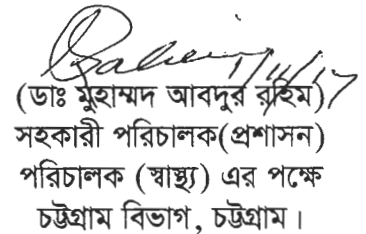 1/11/17
(ডাঃ মুহাম্মদ আবদুর রহিম)
সহকারী পরিচালক(প্রশাসন)
পরিচালক (স্বাস্থ্য) এর পক্ষে
চট্টগ্রাম বিভাগ, চট্টগ্রাম।